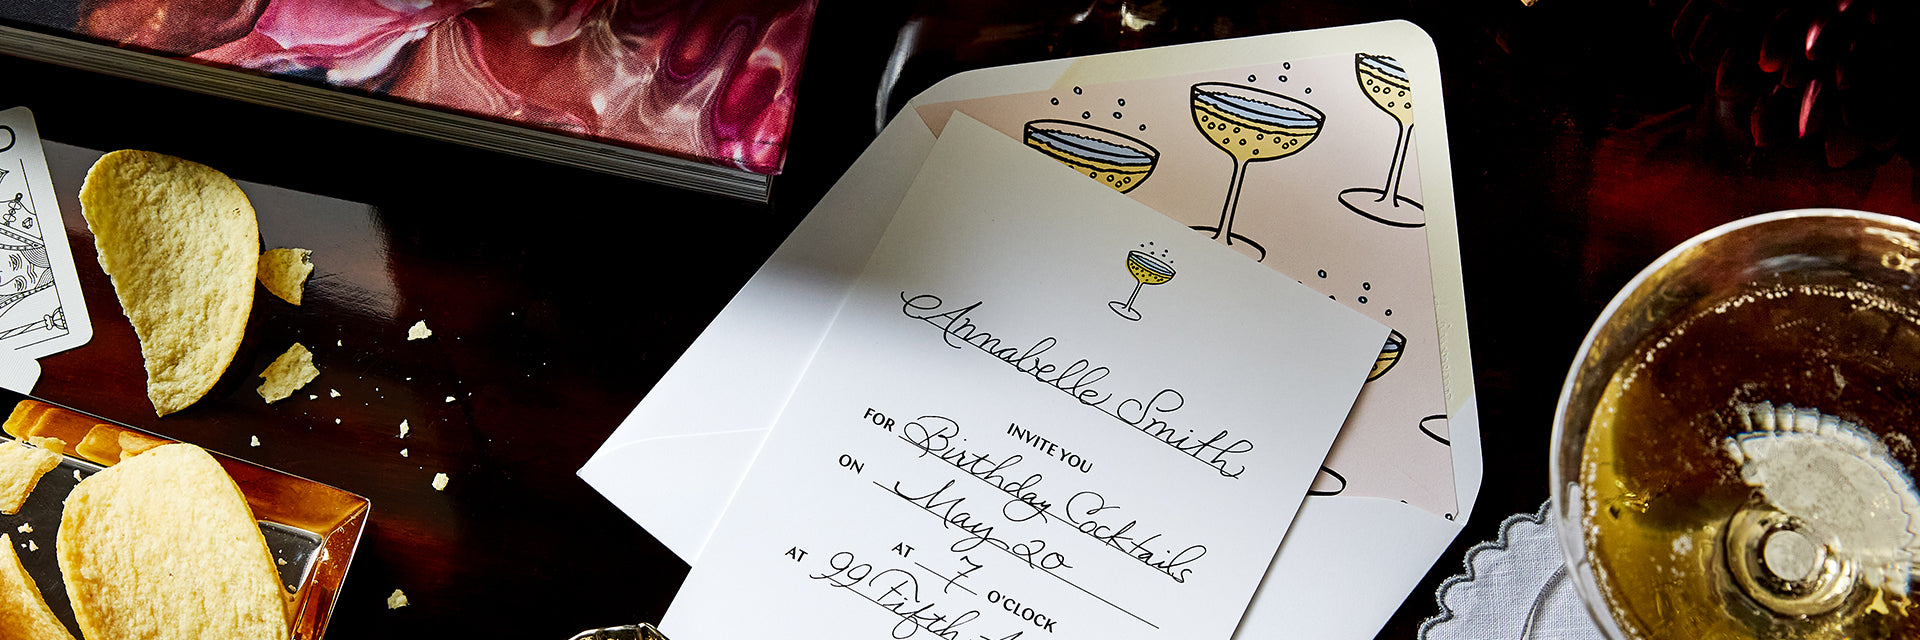 Annabelle Smith
INVITE YOU
FOR Birthday Cocktails
ON May 20
AT 7 O'CLOCK
AT 99 Fifth